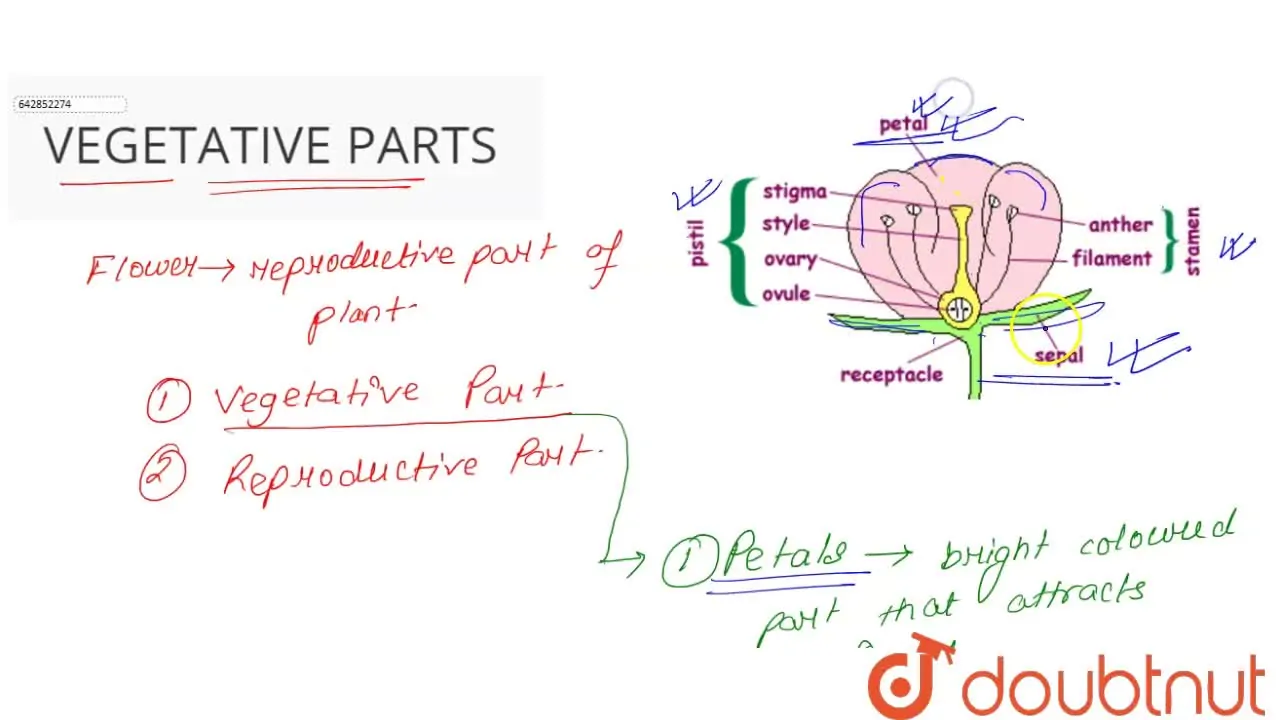 642852274
VEGETATIVE PARTS
Flower → reproductive part of
plant.
① Vegetative Part.
② Reproductive Part.
petal
pistil
stigma
style
ovary
ovule
anther
filament
stamen
sepal
receptacle
① Petals → bright coloured
part that attracts
doubtnut